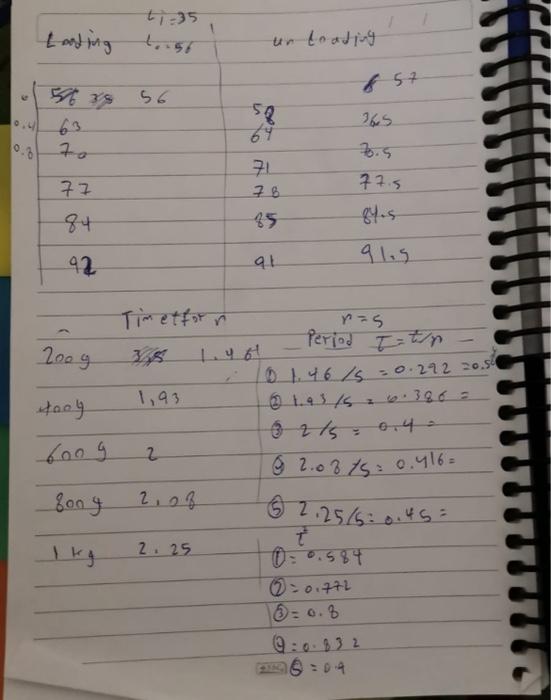 Li=35
Loading Lo=56 unloading
0 56 57
0.4 63 58 36.5
0.8 70 64 70.5
77 71 77.5
84 78 84.5
92 85 91.5
91
Time t for n n=5
Period T=t/n
200g 1.461
① 1.46/5 = 0.292 =
400g 1,93
② 1.93/5 = 0.386 =
③ 2/5 = 0.4 =
600g 2
④ 2.08/5= 0.416=
800g 2.08
⑤ 2.25/5= 0.45 =
1kg 2.25
①= 0.584
②=0.772
③=0.8
④=0.832
⑤=0.9